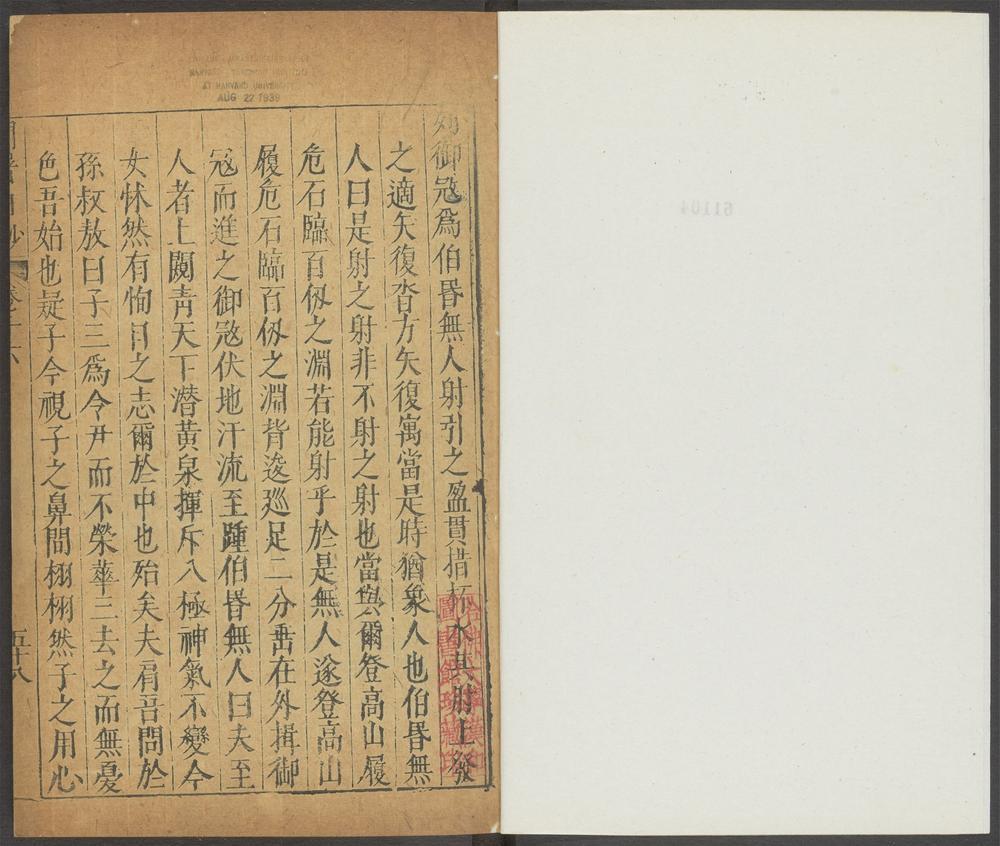 AT HARVARD UNIVERSITY
AUG 22 1939
列御寇爲伯昬無人射引之盈貫措杯水其肘上發
之適矢復沓方矢復寓當是時猶象人也伯昬無
人曰是射之射非不射之射也當與爾登高山履
危石臨百仭之淵若能射乎於是無人遂登高山
履危石臨百仭之淵背逡廵足二分垂在外揖御
寇而進之御寇伏地汗流至踵伯昬無人曰夫至
人者上闚靑天下潛黃泉揮斥八極神氣不變今
女怵然有恂目之志爾於中也殆矣夫肩吾問於
孫叔敖曰子三爲令尹而不榮華三去之而無憂
色吾始也疑子今視子之鼻間栩栩然子之用心
五十八
哈佛大學漢和
圖書館珍藏印
61104